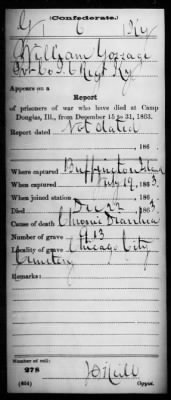 (Confederate.)
G 6 Ky
William Gossage
Pvt Co I 6 Regt Ky
Appears on a
Report
of prisoners of war who have died at Camp
Douglas, Ill., from December 15 to 31, 1863.
Report dated Not dated
, 186 .
Where captured Buffington Island
When captured July 19, 1863.
When joined station , 186 .
Died Dec 22, 1863.
Cause of death Chronic Diarrhea
Number of grave 13
Locality of grave Chicago City
Cemetery
Remarks:
Number of roll:
278
(654) Copyist.